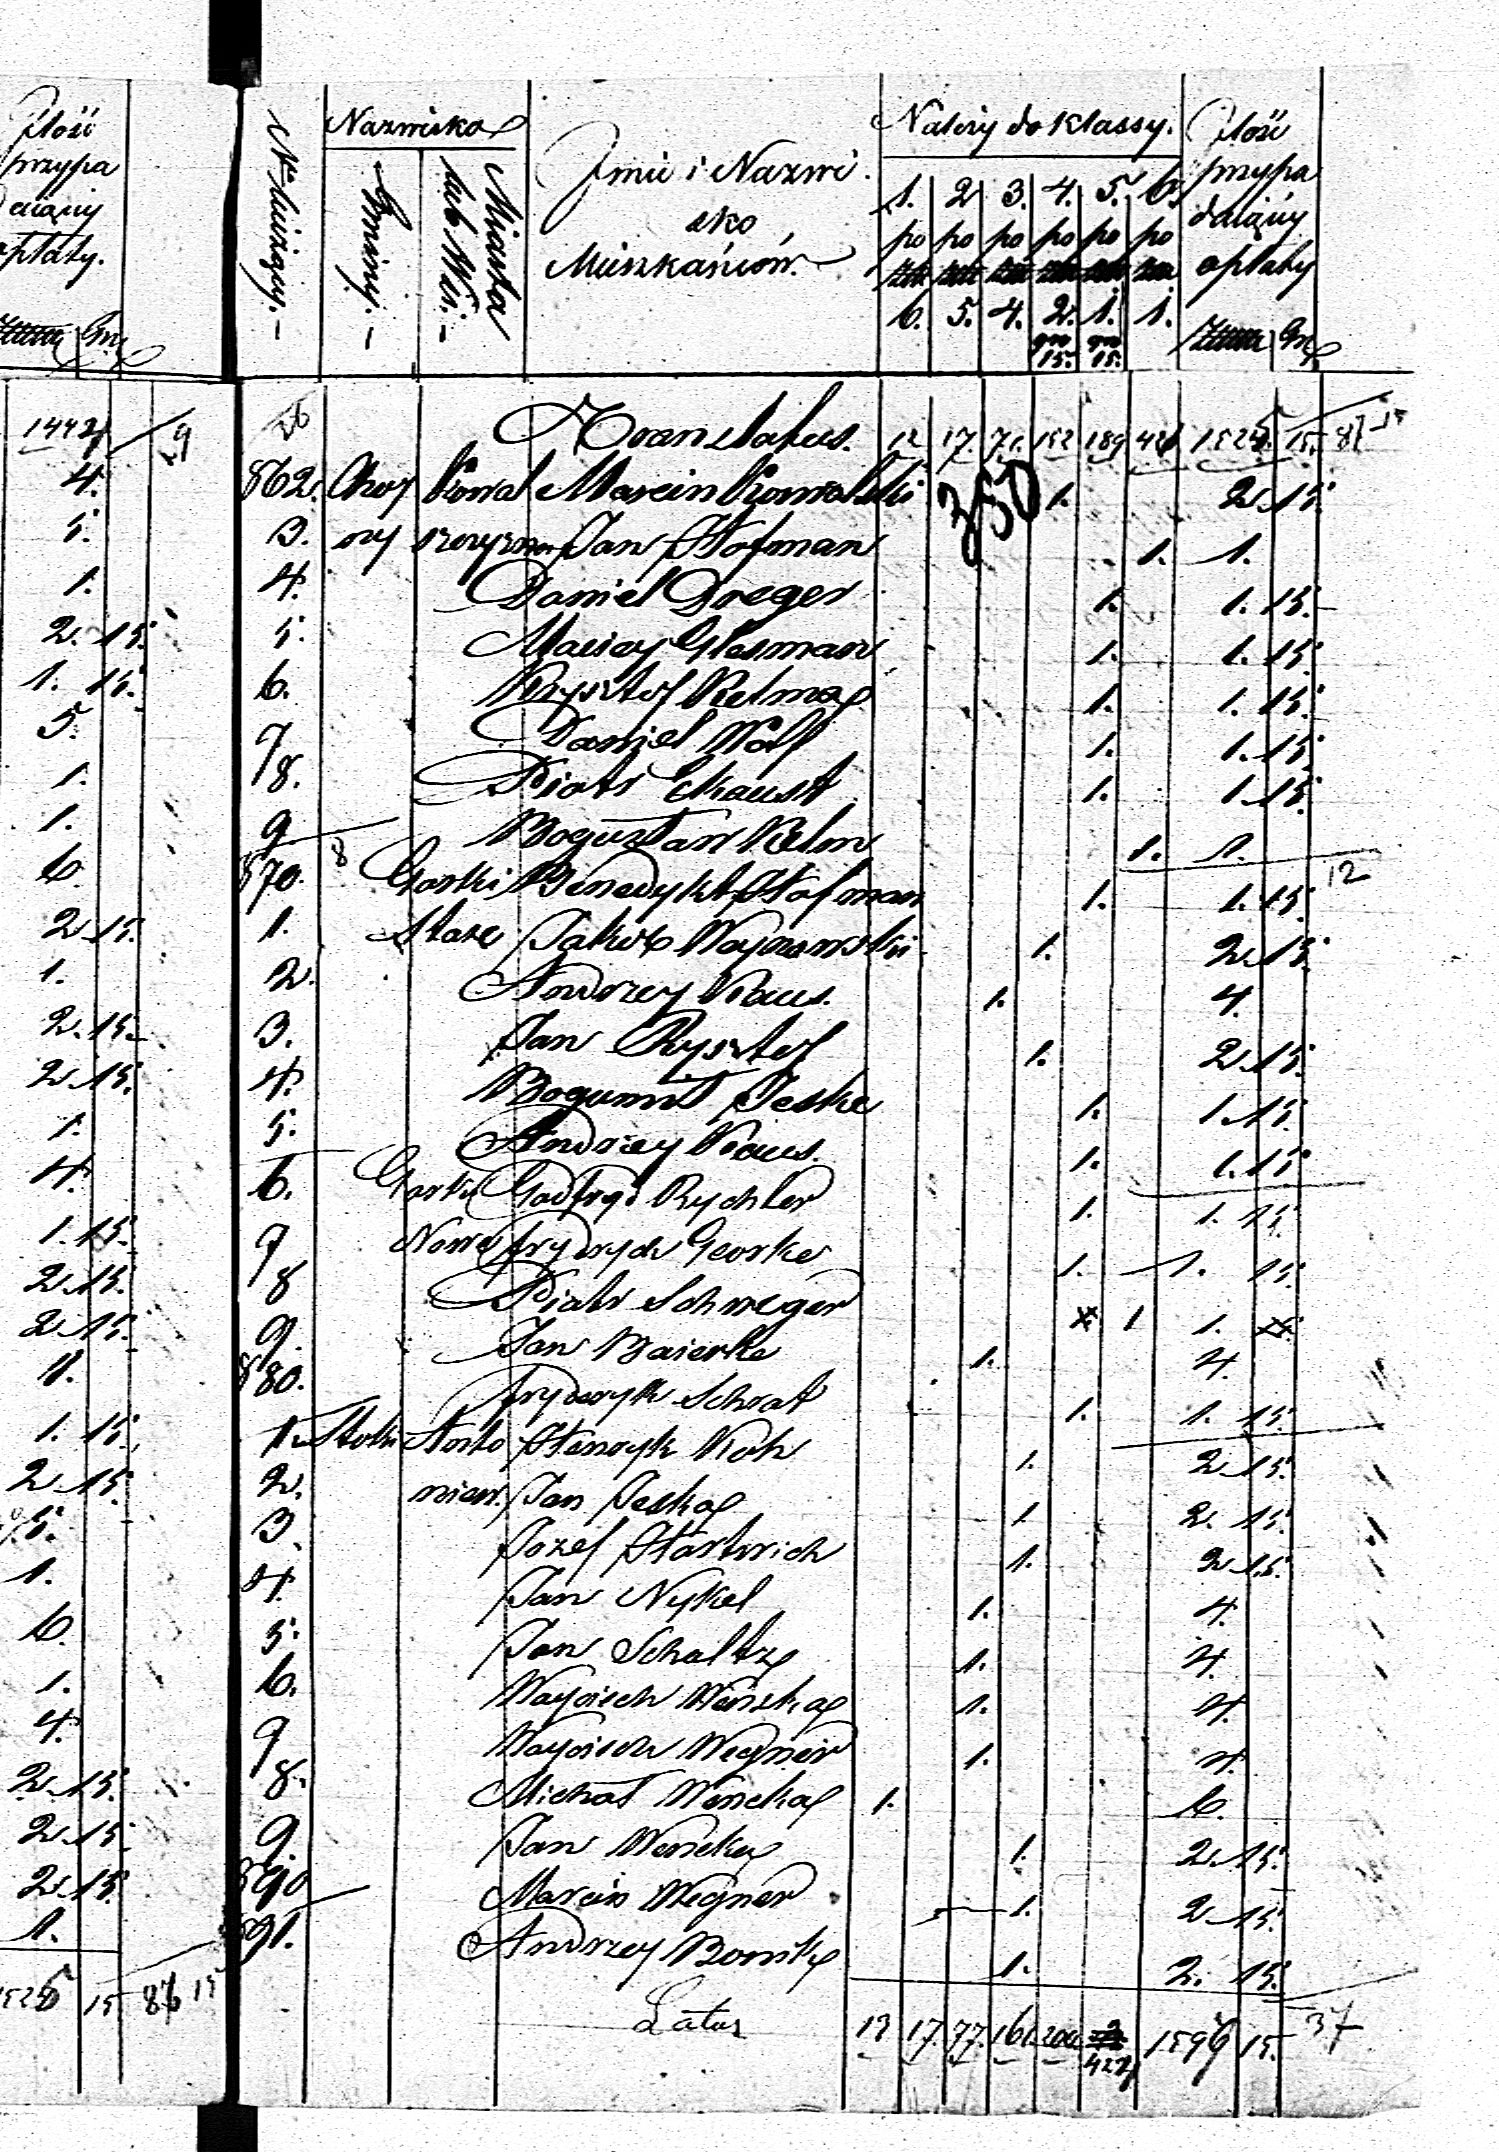 Ilość
przypa
dający
opłaty.
Gr.
1442 29
4.
5.
1.
2. 15.
1. 15.
5.
1.
1.
6.
2. 15.
1.
2. 15.
2. 15.
1.
4.
1. 15.
2. 15.
2. 15.
1. 15.
2. 15.
5.
1.
6.
1.
4.
2. 15.
2. 15.
2. 15.
1.
1525 15 86 15
Nr bieżący.
Nazwisko
Gminy.
Miasta lub Wsi.
Imie i Nazwi
sko
Mieszkańców.
Należy do Klassy.
1. 2. 3. 4. 5. 6.
po po po po po po
6. 5. 4. 2. 1. 1.
gr 15. gr 15.
Ilość
przypa
dający
opłaty
Gr.
Translatus. 12 17. 71. 152 189 421 1525. 15.
350
862. Choy Kowal Marcin Kowalski 1. 2. 15.
3. ny szczyzna Jan Hofman 1. 1.
4. Daniel Dreger 1. 1. 15.
5. Maciey Glesman 1. 1. 15.
6. Krysztof Kelm 1. 1. 15.
7 Daniel Wolf 1. 1. 15.
8. Piotr Ekaust 1. 1. 15.
9 Bogusław Kelm 1. 1.
870. Gorki Benedykt Hofman 1. 1. 15. 12
1. Stare Jakób Woynowski 1. 2. 15.
2. Andrzey Kraus. 1. 4.
3. Jan Krysztof 1. 2. 15.
4. Bogumił Jeske 1. 1. 15.
5. Andrzey Kraus. 1. 1. 15.
6. Gorki Godfryd Rychter 1. 1. 15.
7 Nowe Frydrych Georke 1. 1. 15.
8 Piotr Schweger 1 1.
9. Jan Baierke 1. 4.
880. Frydryk Schrat 1. 1. 15.
1. Stoki Anto Henryk Koh 1. 2. 15.
2. niew. Jan Jeska 1. 2. 15.
3. Jozef Hartwich 1. 2. 15.
4. Jan Nykel 1. 4.
5. Jan Schultz 1. 4.
6. Woyciech Wenska 1. 4.
7 Woyciech Wegner 1. 4.
8. Michał Wencka 1. 6.
9. Jan Wencka 1. 2. 15.
890 Marcin Wegner 1. 2. 15.
891. Andrzey Bonik 1. 2. 15.
Latus 13 17. 77. 161. 200. 427 1596 15. 37